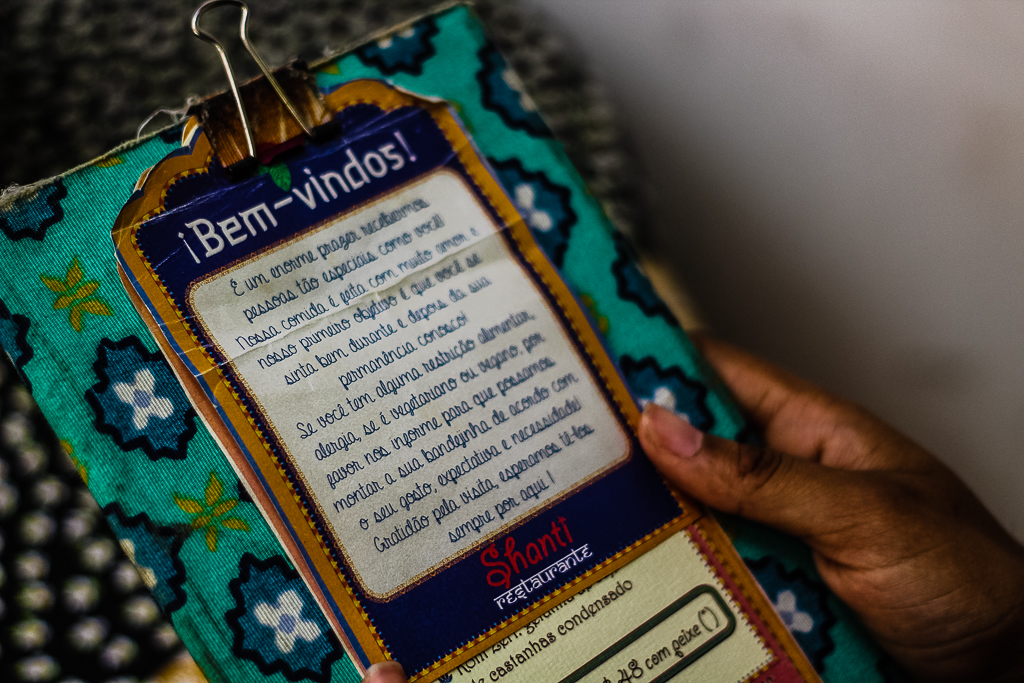 ¡Bem-vindos!
É um enorme prazer recebermos
pessoas tão especiais como você!
Nossa comida é feita com muito amor e
nosso primeiro objetivo é que você se
sinta bem durante e depois da sua
permanência conosco!
Se você tem alguma restrição alimentar,
alergia, se é vegetariano ou vegano, por
favor nos informe para que possamos
montar a sua bandejinha de acordo com
o seu gosto, expectativa e necessidade!
Gratidão pela visita, esperamos tê-los
sempre por aqui!
Shanti
restaurante
de castanhas condensado
48 com peixe (*)